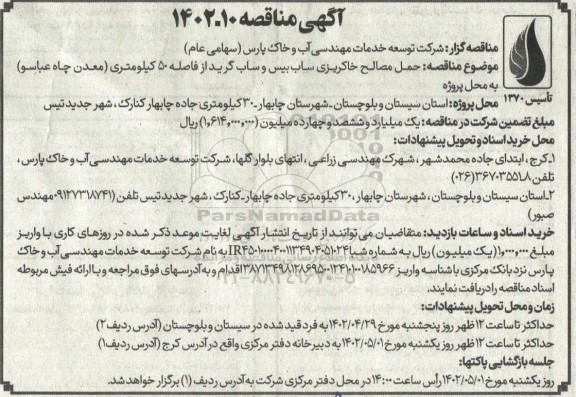 آگهی مناقصه ۱۴۰۲.۱۰
مناقصه گزار: شرکت توسعه خدمات مهندسی آب و خاک پارس (سهامی عام)
موضوع مناقصه: حمل مصالح خاکریزی ساب بیس و ساب گرید از فاصله ۵۰ کیلومتری (معدن چاه عباسو)
به محل پروژه
تأسیس ۱۳۷۰
محل پروژه: استان سیستان و بلوچستان ـ شهرستان چابهار ـ ۳۰ کیلومتری جاده چابهار کنارک، شهر جدید تیس
مبلغ تضمین شرکت در مناقصه: یک میلیارد و ششصد و چهارده میلیون (۱,۶۱۴,۰۰۰,۰۰۰) ریال
محل خرید اسناد و تحویل پیشنهادات:
۱ـ کرج، ابتدای جاده محمدشهر، شهرک مهندسی زراعی، انتهای بلوار گلها، شرکت توسعه خدمات مهندسی آب و خاک پارس،
تلفن ۸ـ۳۶۷۰۳۵۵۱(۰۲۶)
۲ـ استان سیستان و بلوچستان، شهرستان چابهار، ۳۰ کیلومتری جاده چابهار ـ کنارک، شهر جدید تیس تلفن (۰۹۱۲۷۳۱۸۷۴۱ مهندس
صبور)
خرید اسناد و ساعات بازدید: متقاضیان می‌توانند از تاریخ انتشار آگهی لغایت موعد ذکر شده در روزهای کاری با واریز
مبلغ ۱,۰۰۰,۰۰۰ (یک میلیون) ریال به شماره شبا IR۴۵۰۱۰۰۰۰۴۰۰۱۱۳۴۹۰۴۰۵۱۰۲۴ به نام شرکت توسعه خدمات مهندسی آب و خاک
پارس نزد بانک مرکزی با شناسه واریز ۳۸۷۱۳۴۹۸۱۲۸۶۹۵۰۱۲۴۱۰۰۱۸۵۹۶۶ اقدام و به آدرسهای فوق مراجعه و با ارائه فیش مربوطه
اسناد مناقصه را دریافت نمایند.
زمان و محل تحویل پیشنهادات:
حداکثر تا ساعت ۱۲ ظهر روز پنجشنبه مورخ ۱۴۰۲/۰۴/۲۹ به فرد قید شده در سیستان و بلوچستان (آدرس ردیف ۲)
حداکثر تا ساعت ۱۲ ظهر روز یکشنبه مورخ ۱۴۰۲/۰۵/۰۱ به دبیرخانه دفتر مرکزی واقع در آدرس کرج (آدرس ردیف ۱)
جلسه بازگشایی پاکتها:
روز یکشنبه مورخ ۱۴۰۲/۰۵/۰۱ رأس ساعت ۱۴:۰۰ در محل دفتر مرکزی شرکت به آدرس ردیف (۱) برگزار خواهد شد.
ParsNamadData